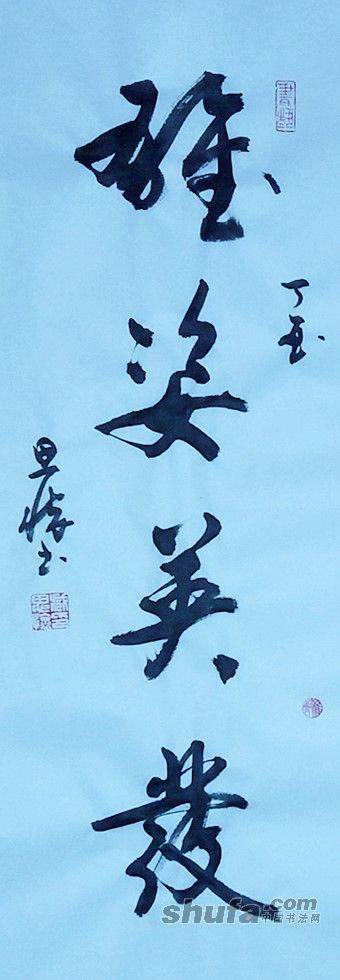 雄姿英發
丁酉
shufa.com
中国书法网